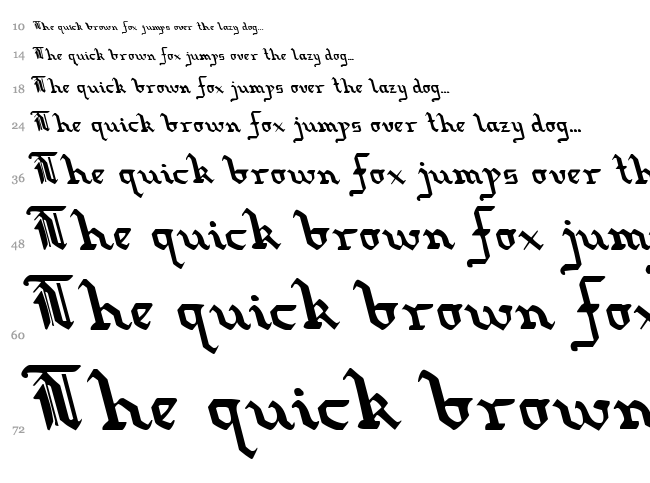 10 The quick brown fox jumps over the lazy dog...
14 The quick brown fox jumps over the lazy dog...
18 The quick brown fox jumps over the lazy dog...
24 The quick brown fox jumps over the lazy dog...
36 The quick brown fox jumps over th
48 The quick brown fox jum
60 The quick brown fox
72 The quick brown